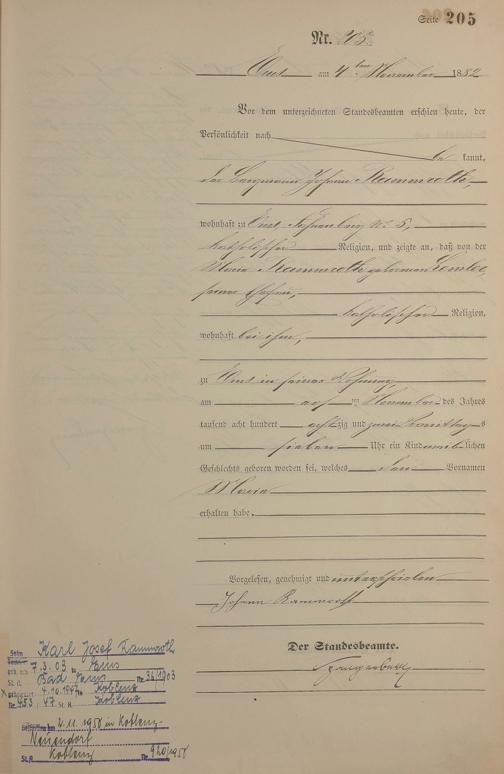 Seite 205
Nr.
Ems am 4ten November 1882
Vor dem unterzeichneten Standesbeamten erschien heute, der
Persönlichkeit nach
be kannt,
der Bergmann Johann
wohnhaft zu Ems, No 5,
katholischer Religion, und zeigte an, daß von der
Maria geborenen
seiner Ehefrau,
katholischer Religion,
wohnhaft bei ihm,
zu Ems in seiner Wohnung,
am ten November des Jahres
tausend acht hundert achtzig und zwei Vormittags
um sieben Uhr ein Kind weiblichen
Geschlechts geboren worden sei, welches den Vornamen
Maria
erhalten habe.
Vorgelesen, genehmigt und unterschrieben
Johann
Der Standesbeamte.
Sohn Karl Josef
7.3.03 in Ems
St. A. Bad Ems Nr. 36/1903
4.10.1947 in Koblenz
Nr. 453/47 St. A. Koblenz
am 2.11.1958 in Koblenz-
Neuendorf
St. A. Koblenz Nr. 920/1958